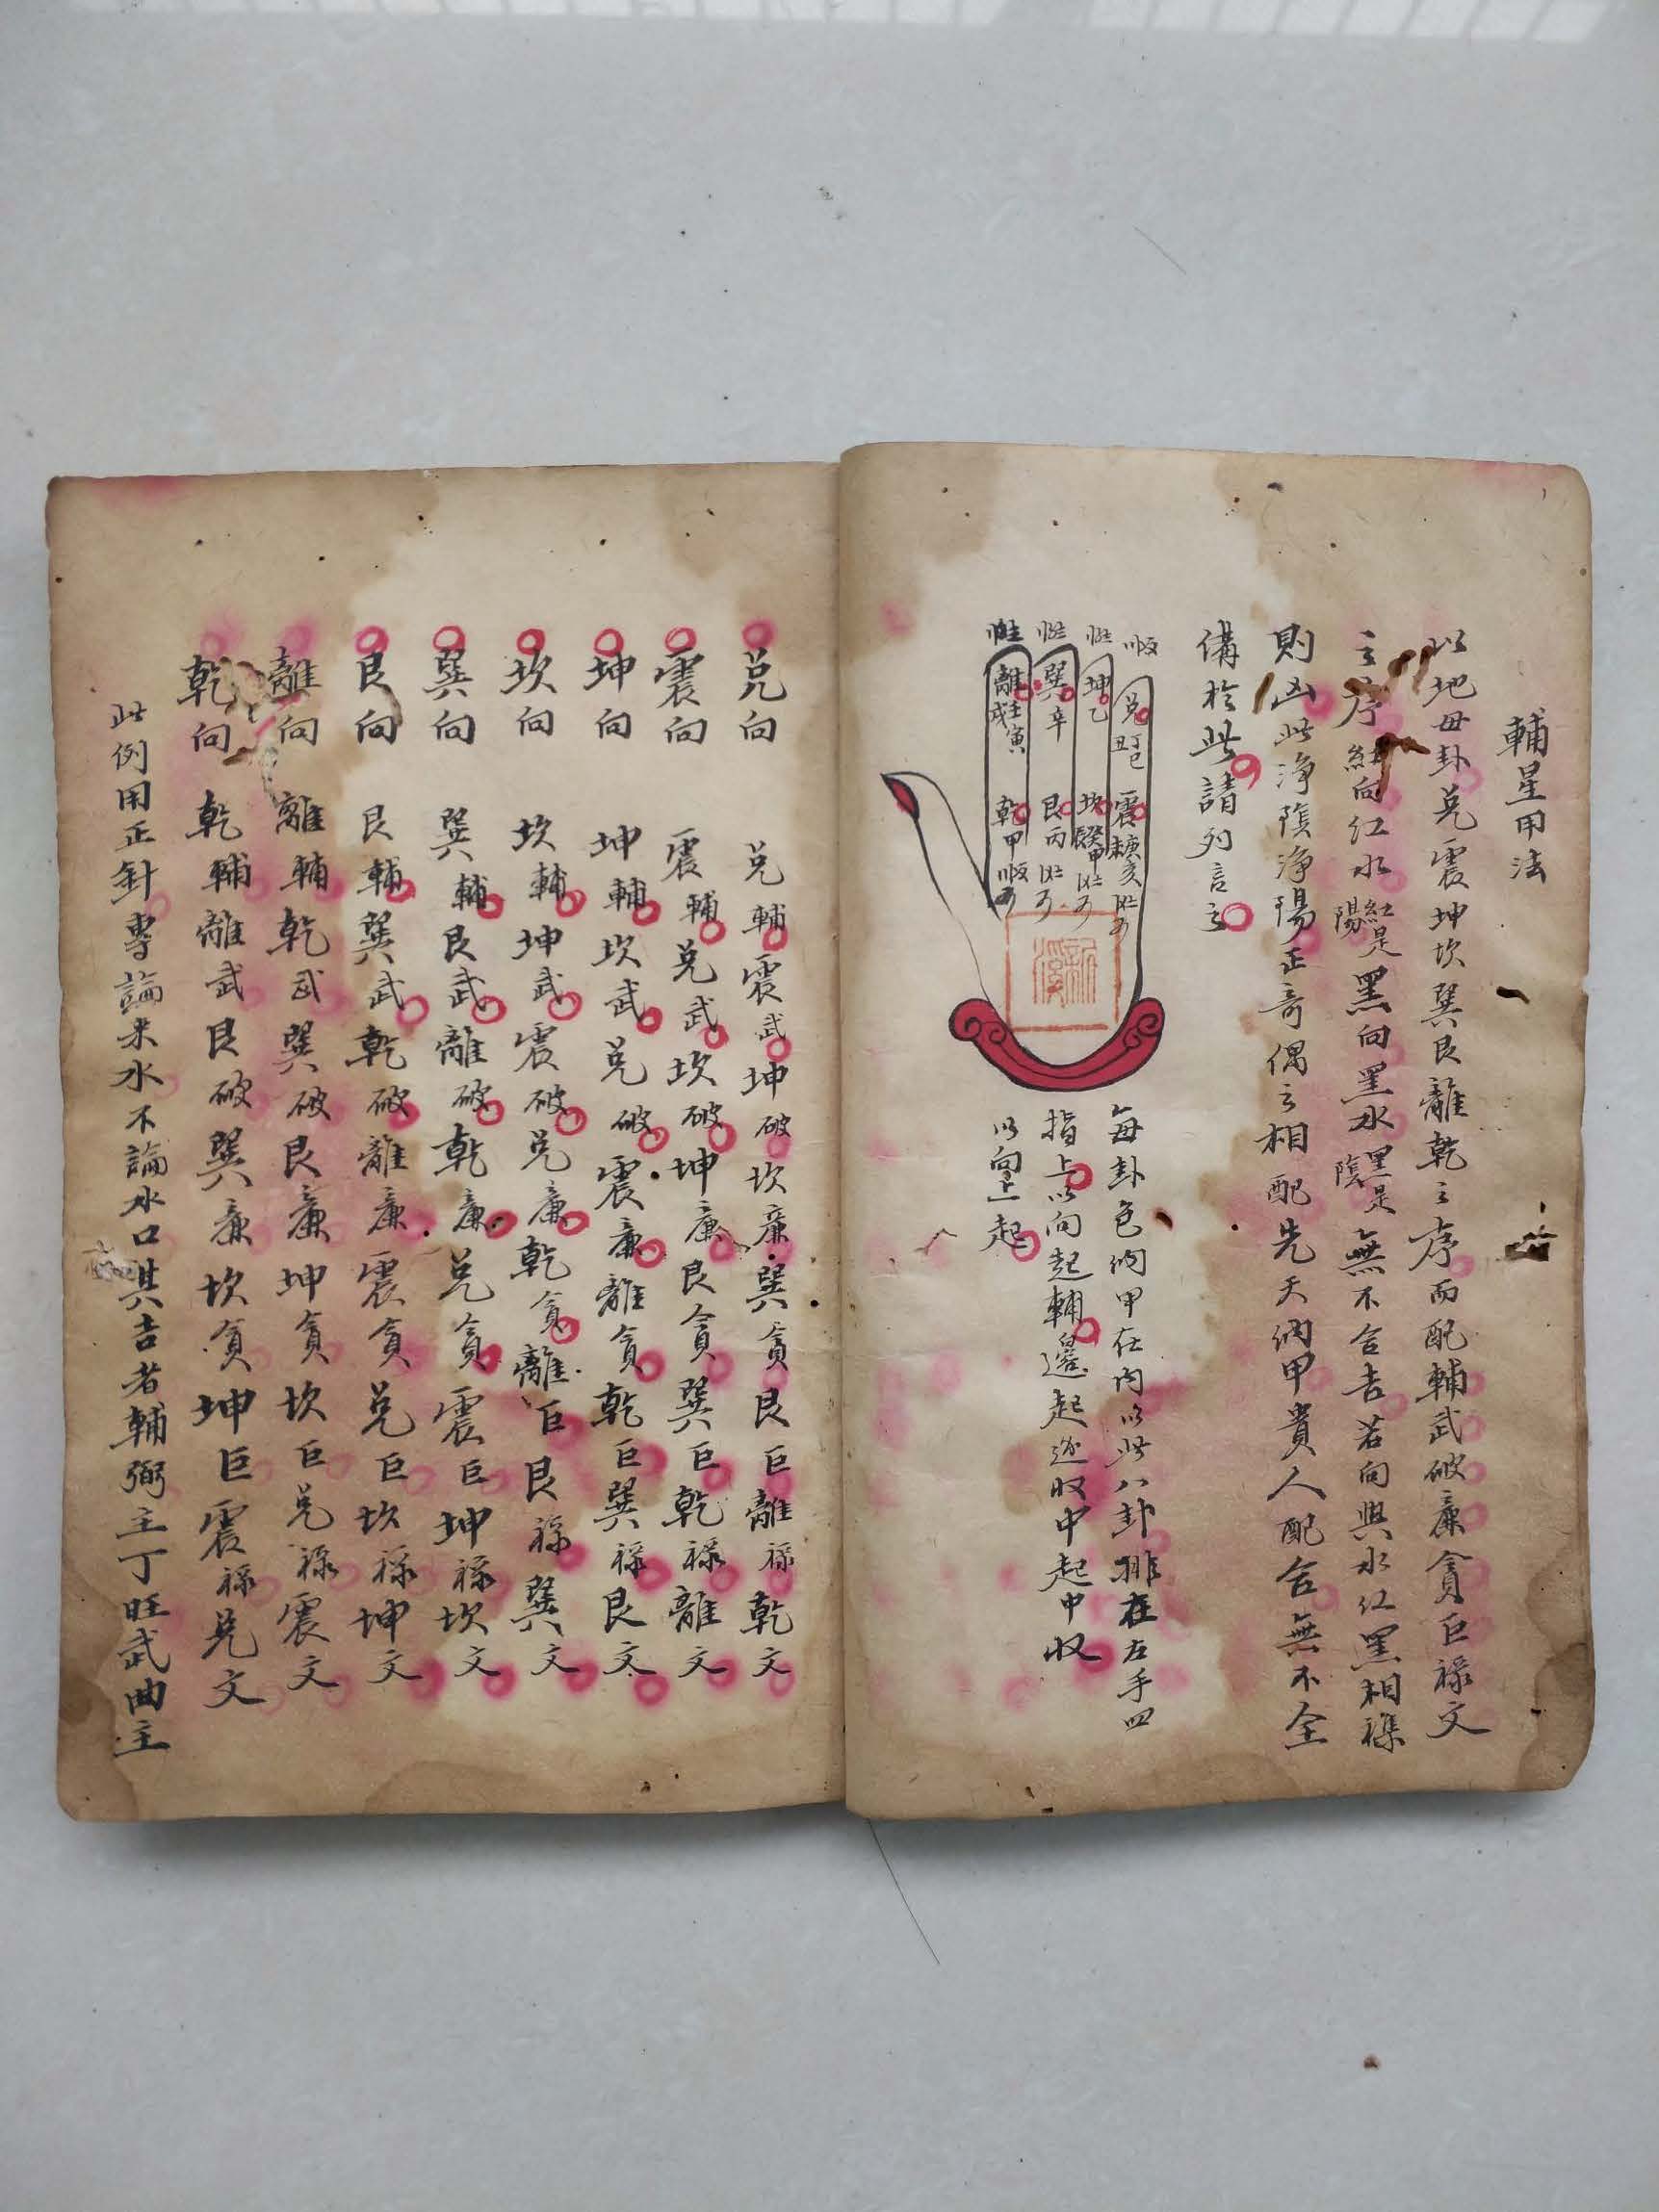 輔星用法
以地母卦兌震坤坎巽艮離乾之序而配輔武破廉貪巨祿文
之序紅向紅水紅是陽黑向黑水黑是陰無不合吉若向與水紅黑相襍
則凶此淨陰淨陽正奇偶之相配先天納甲貴人配合無不全
備於此請列言之
兌丁巳丑 震庚亥未
坤乙 坎癸申辰
巽辛 艮丙
離壬寅戌 乾甲
每卦包納甲在內以此八卦排在左手四
指上以向起輔邊起逆收中起中收
以向上起
兌向 兌輔震武坤破坎廉巽貪艮巨離祿乾文
震向 震輔兌武坎破坤廉艮貪巽巨乾祿離文
坤向 坤輔坎武兌破震廉離貪乾巨巽祿艮文
坎向 坎輔坤武震破兌廉乾貪離巨艮祿巽文
巽向 巽輔艮武離破乾廉兌貪震巨坤祿坎文
艮向 艮輔巽武乾破離廉震貪兌巨坎祿坤文
離向 離輔乾武巽破艮廉坤貪坎巨兌祿震文
乾向 乾輔離武艮破巽廉坎貪坤巨震祿兌文
此例用正針專論來水不論水口其吉者輔弼主丁旺武曲主